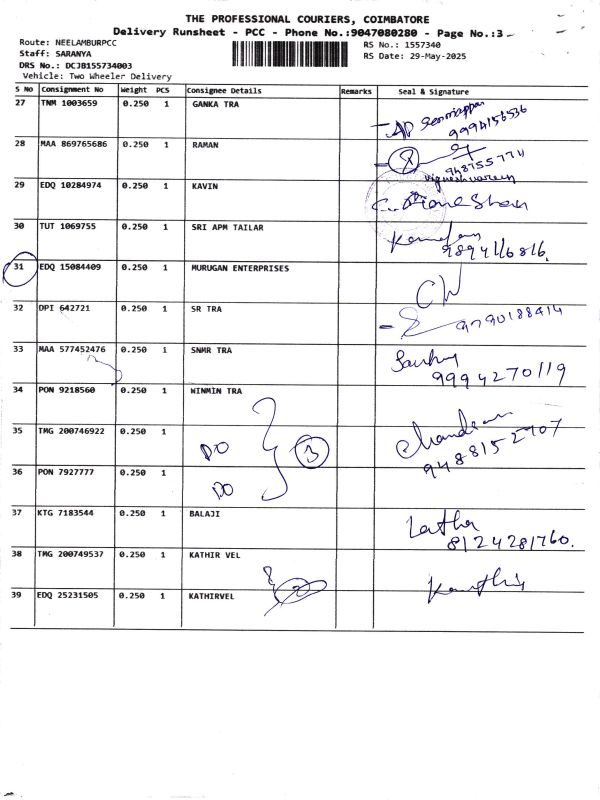 THE PROFESSIONAL COURIERS, COIMBATORE
Delivery Runsheet - PCC - Phone No.:9047080280 - Page No.:3
Route: NEELAMBURPCC
RS No.: 1557340
Staff: SARANYA
RS Date: 29-May-2025
DRS No.: DCJB155734003
Vehicle: Two Wheeler Delivery
S No Consignment No Weight PCS Consignee Details Remarks Seal & Signature
27 TNM 1003659 0.250 1 GANKA TRA
9994156536
28 MAA 869765686 0.250 1 RAMAN
29 EDQ 10284974 0.250 1 KAVIN
30 TUT 1069755 0.250 1 SRI APM TAILAR
31 EDQ 15084409 0.250 1 MURUGAN ENTERPRISES
32 DPI 642721 0.250 1 SR TRA
9790188414
33 MAA 577452476 0.250 1 SNMR TRA
9994270119
34 PON 9218560 0.250 1 WINMIN TRA
35 TMG 200746922 0.250 1 DO 3
9488152707
36 PON 7927777 0.250 1 DO
37 KTG 7183544 0.250 1 BALAJI Latha
8124281760.
38 TMG 200749537 0.250 1 KATHIR VEL
39 EDQ 25231505 0.250 1 KATHIRVEL